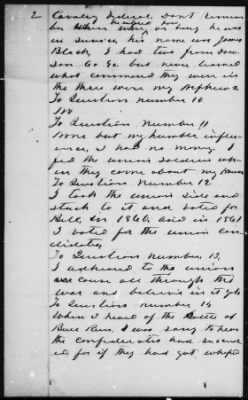 2 Cavalry Federal. Dont remem
ber when he or how long he was
in service, his name was James
Black, I had two from Daw
son Co Ga. but never learned
what command they were in
the there were my Nephews
To Question number 10
No
To Question Number 11
None but my humble influ
ence, I had no money. I
fed the union soldiers wh
en they come about my house
To Questions Number 12
I took the union side and
stuck to it and voted for
Bell, in 1860, and in 1861
I voted for the union can
didates,
To Question Number, 13,
I adhered to the union
cause all through the
war and believe in it yet
To Question number 14
When I heard of the Battle of
Bull Run, I was sorry to hear
the confederates had succeed
ed for if they had got whiped